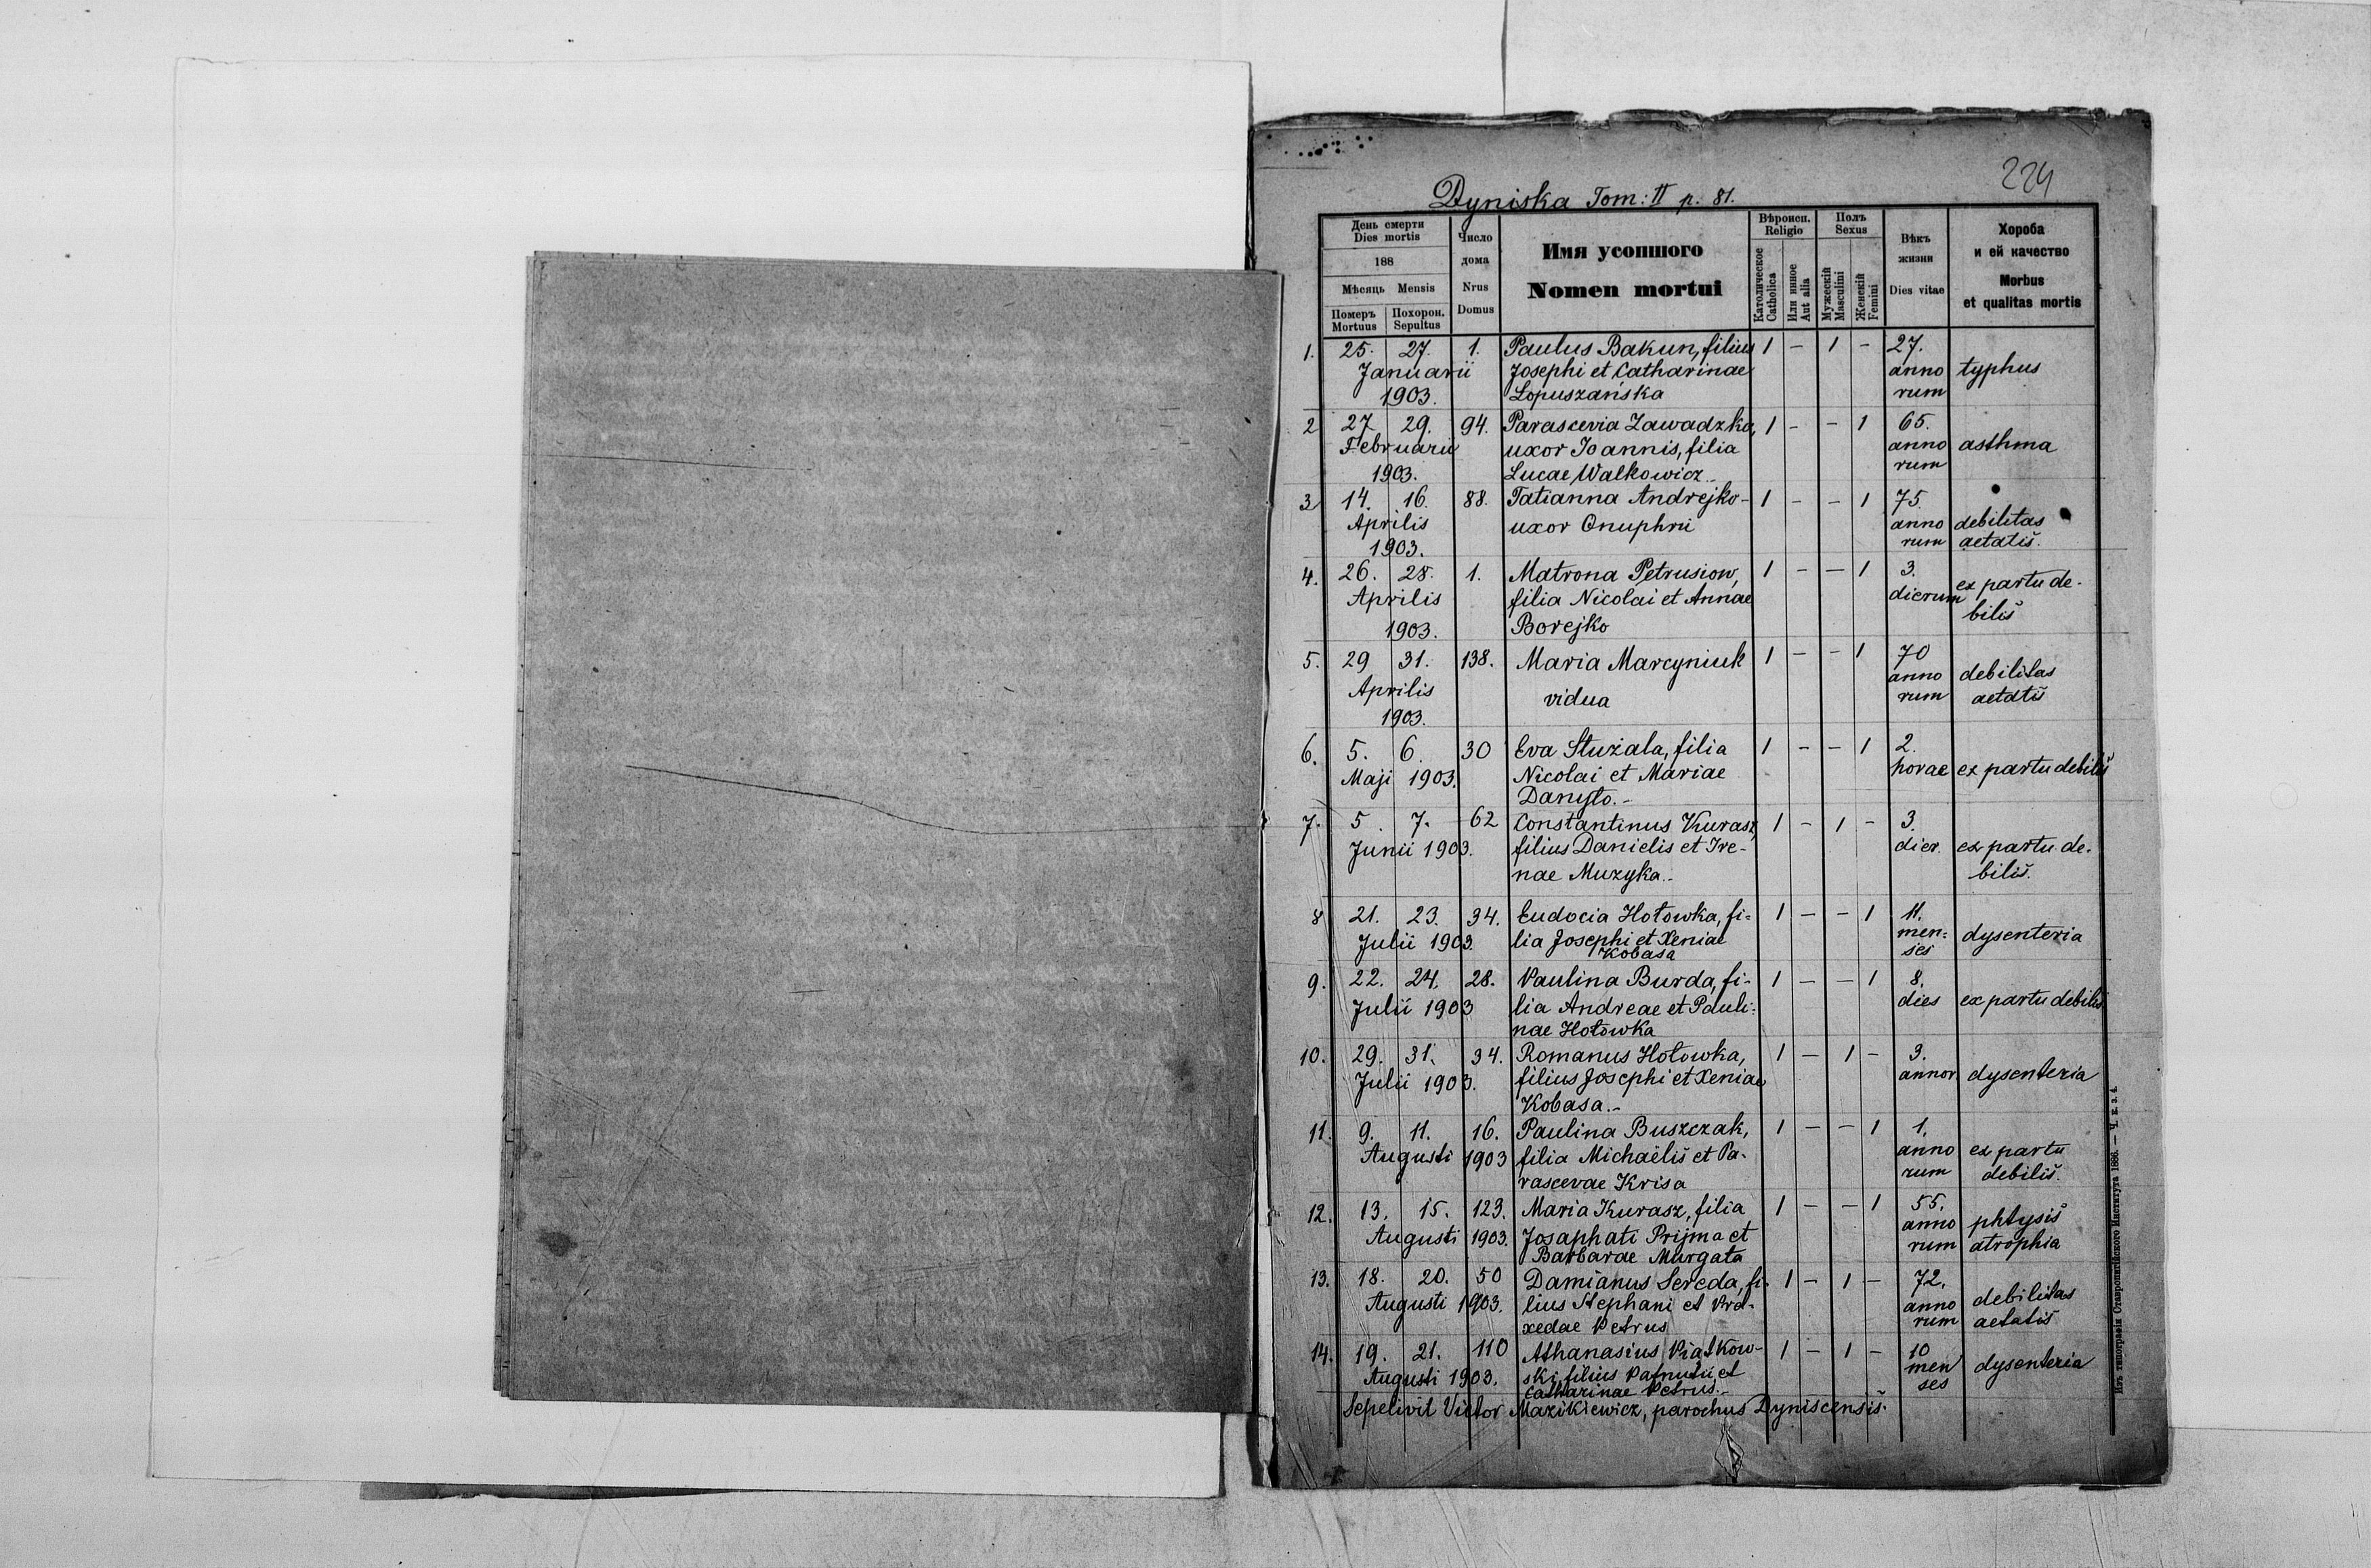 224
Dyniska Tom: II p. 81.
День смерти
Dies mortis
188
Мѣсяць Mensis
Померъ
Mortuus
Похорон.
Sepultus
Число
дома
Nrus
Domus
Имя усопшого
Nomen mortui
Вѣроисп.
Religio
Католическое
Catholica
Или инное
Aut alia
Полъ
Sexus
Мужескій
Masculini
Женскій
Femini
Вѣкъ
жизни
Dies vitae
Хороба
и ей качество
Morbus
et qualitas mortis
1. 25. 27. 1. Paulus Bakun, filius 1 – 1 – 27.
Januarii Josephi et Catharinae anno typhus
1903. Łopuszańska rum
2 27 29. 94. Parascevia Zawadzka, 1 – – 1 65.
Februarii uxor Joannis, filia anno asthma
1903. Lucae Walkowicz.- rum
3 14. 16. 88. Tatianna Andrejko- 1 – – 1 75.
Aprilis uxor Onuphrii anno debilitas
1903. rum aetatis.
4. 26. 28. 1. Matrona Petrusiow, 1 – – 1 3.
Aprilis filia Nicolai et Annae dierum ex partu de-
1903. Borejko bilis
5. 29 31. 138. Maria Marcyniuk 1 – – 1 70
Aprilis vidua anno debilitas
1903. rum aetatis
6. 5. 6. 30 Eva Stużała, filia 1 – – 1 2.
Maji 1903. Nicolai et Mariae horae ex partu debilis
Danyło.-
7. 5. 7. 62 Constantinus Kurasz, 1 – 1 – 3.
Junii 1903. filius Danielis et Ire- dier. ex partu de-
nae Muzyka.- bilis.
8 21. 23. 34. Eudocia Hołowka, fi= 1 – – 1 11.
Julii 1903. lia Josephi et Xeniae men= dysenteria
Kobasa ses
9. 22. 24. 28. Paulina Burda, fi- 1 – – 1 8.
Julii 1903 lia Andreae et Pauli= dies ex partu debilis
nae Hołowka
10. 29. 31. 34. Romanus Hołowka, 1 – 1 – 3.
Julii 1903. filius Josephi et Xeniae annor. dysenteria
Kobasa.-
11. 9. 11. 16. Paulina Buszczak, 1 – – 1 1.
Augusti 1903 filia Michaëlis et Pa- anno ex partu
rascevae Krisa rum debilis.
12. 13. 15. 123. Maria Kurasz, filia 1 – – 1 55.
Augusti 1903. Josaphati Prijma et anno phtysis
Barbarae Margata rum atrophia
13. 18. 20. 50 Damianus Sereda, fi- 1 – 1 – 72.
Augusti 1903. lius Stephani et Pra- anno debilitas
xedae Petrus rum aetatis
14. 19. 21. 110 Athanasius Piątkow- 1 – 1 – 10
Augusti 1903. ski, filius Pafnutii et men dysenteria
Catharinae Petrus.- ses
Sepelivit Victor Mazikiewicz, parochus Dyniscensis.
Изъ типографіи Ставропигійского Института 1886. — Ч. е. з. 4.